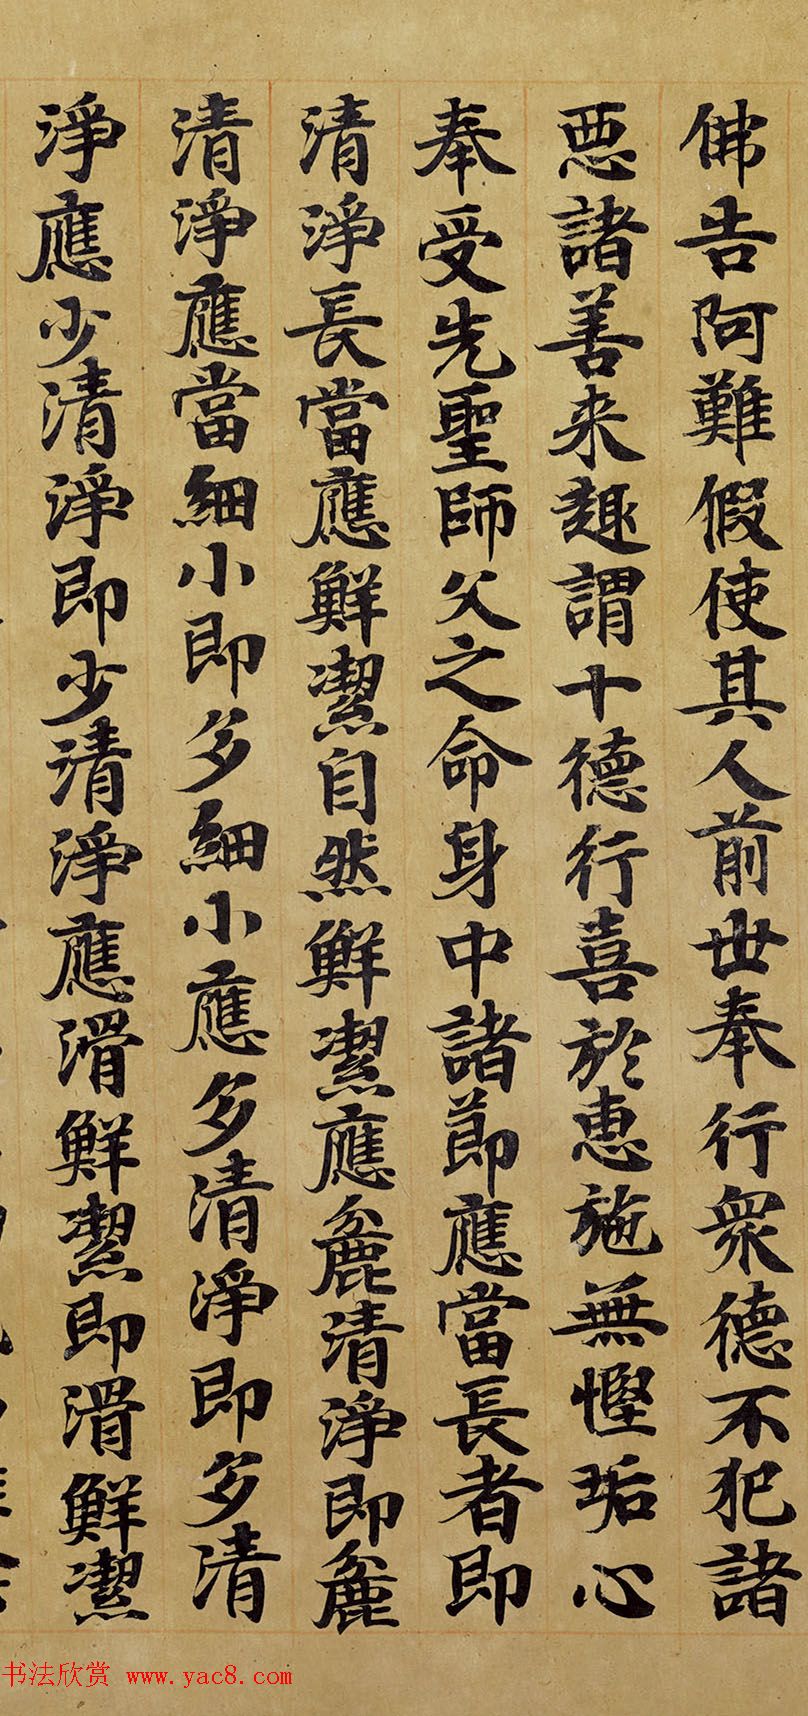 佛告阿難假使其人前世奉行衆德不犯諸
惡諸善来趣謂十德行喜於惠施無慳垢心
奉受先聖師父之命身中諸節應當長者即
清淨長當應鮮潔自然鮮潔應麁清淨即麁
清淨應當細小即多細小應多清淨即多清
淨應少清淨即少清淨應滑鮮潔即滑鮮潔
书法欣赏 www.yac8.com